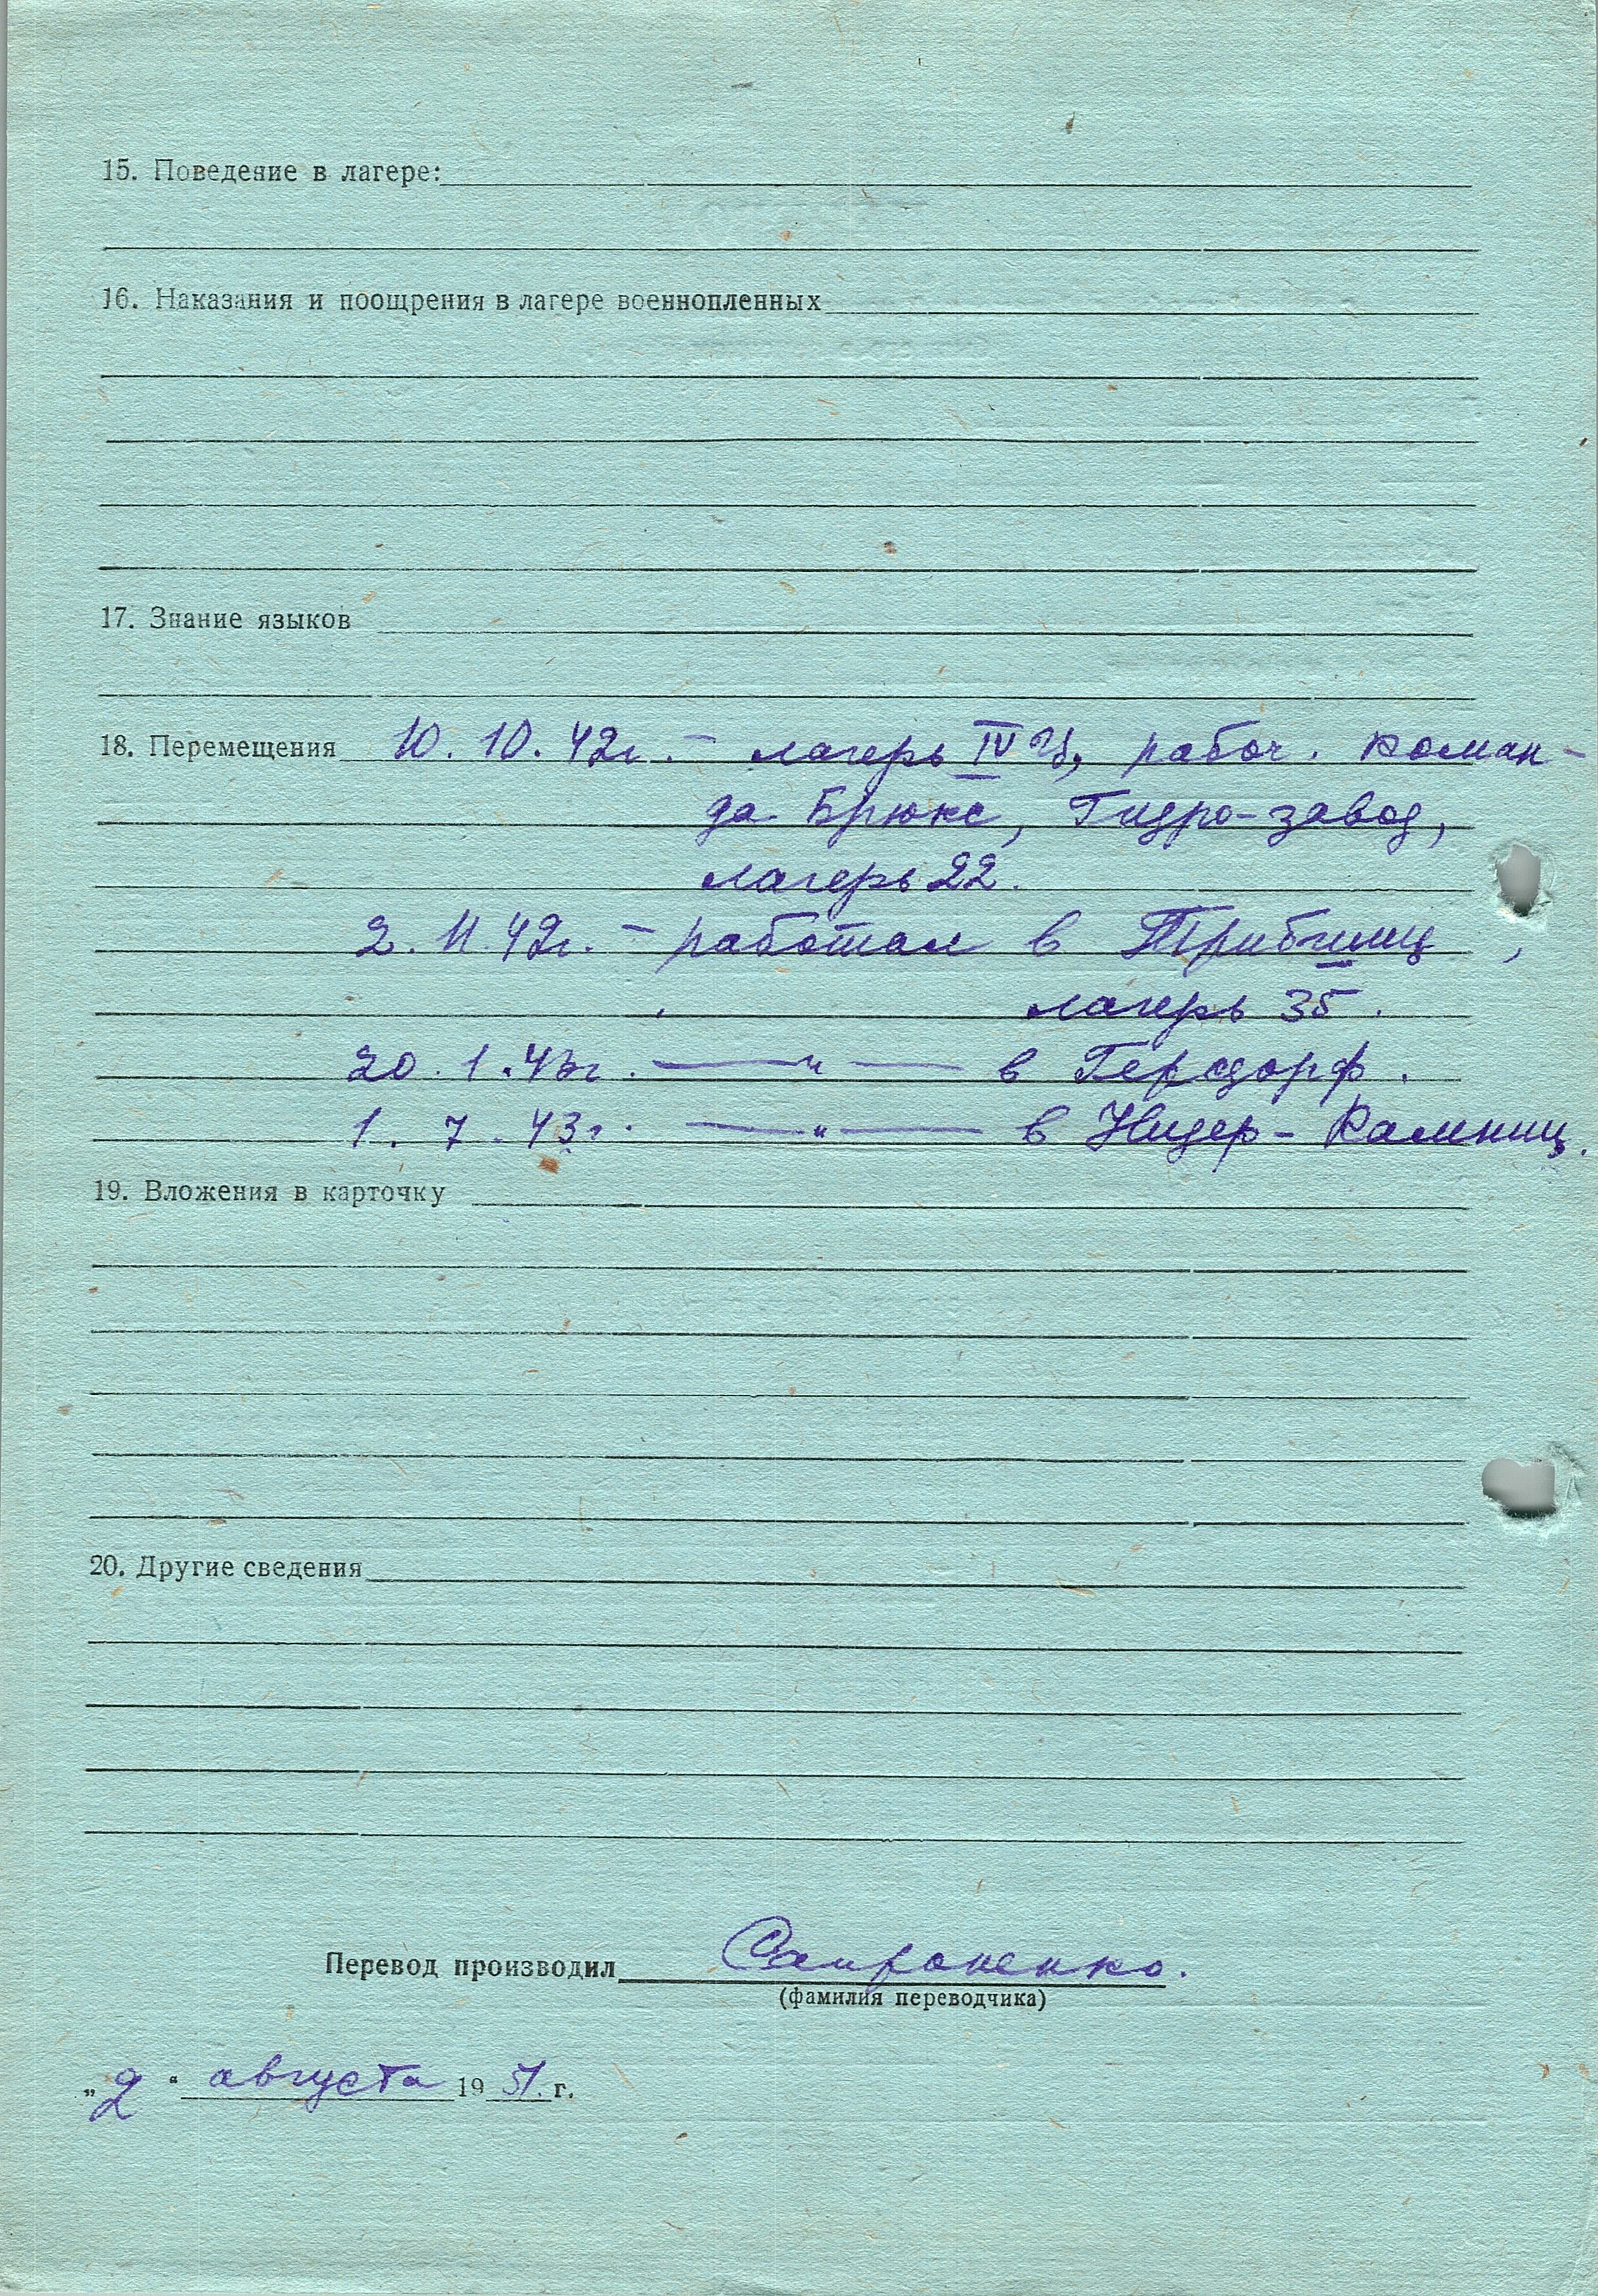 15. Поведение в лагере:
16. Наказания и поощрения в лагере военнопленных
17. Знание языков
18. Перемещения 10.10.42г. – лагерь IV Ц, рабоч. коман-
да Брюкс, Гидро-завод,
лагерь 22.
2.11.42г. – работал в Трибшиц,
лагерь 35.
20.1.43г. —"— в Герсдорф.
1.7.43г. —"— в Нидер-Камниц.
19. Вложения в карточку
20. Другие сведения
Перевод производил
(фамилия переводчика)
„2“ августа 1951 г.